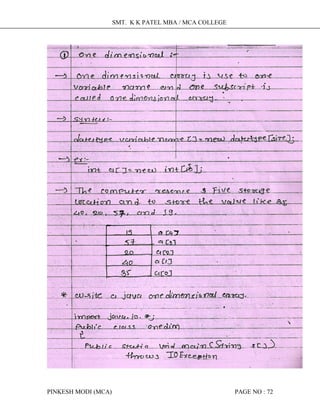 SMT. K K PATEL MBA / MCA COLLEGE
① One dimensional :-
→ One dimensional array is use to one
variable name and one subscript is
called one dimensional array.
→ Syntex:-
datatype variable name [] = new datatype[size];
→ ex:-
int a[] = new int[5];
→ The computer reserve 5 Five storage
location and to store the value like 35
40, 20, 57, and 19.
19 a[4]
57 a[3]
20 a[2]
40 a[1]
35 a[0]
* write a java one dimensional array.
import java.io.*;
Public class onedim
{
Public static void main(String s[])
throws IOException
PINKESH MODI (MCA) PAGE NO : 72